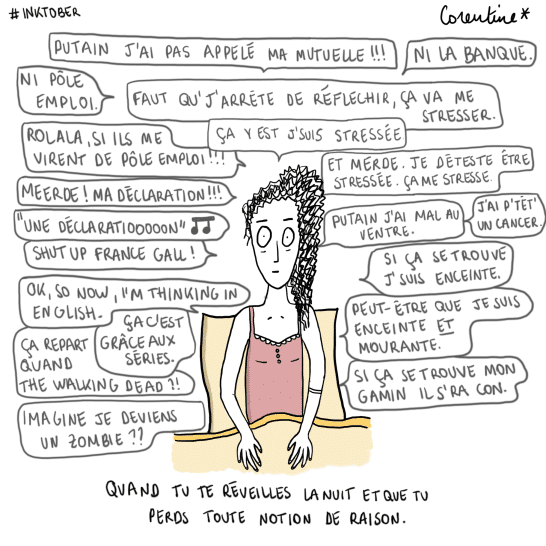 #INKTOBER
Corentine*
PUTAIN J'AI PAS APPELÉ MA MUTUELLE!!!
NI LA BANQUE.
NI PÔLE
EMPLOI.
FAUT QU'J'ARRÊTE DE RÉFLECHIR, ÇA VA ME
STRESSER.
ROLALA, SI ILS ME
VIRENT DE PÔLE EMPLOI!!!
ÇA Y EST J'SUIS STRESSÉE
ET MERDE. JE DÉTESTE ÊTRE
STRESSÉE. ÇA ME STRESSE.
MEERDE! MA DÉCLARATION!!!
"UNE DÉCLARATIOOOOON" 🎵
SHUT UP FRANCE GALL!
PUTAIN J'AI MAL AU
VENTRE.
J'AI P'TÊT'
UN CANCER.
SI ÇA SE TROUVE
J'SUIS ENCEINTE.
OK, SO NOW, I'M THINKING IN
ENGLISH.
ÇA C'EST
GRÂCE AUX
SÉRIES.
PEUT-ÊTRE QUE JE SUIS
ENCEINTE ET
MOURANTE.
ÇA REPART
QUAND
THE WALKING DEAD?!
SI ÇA SE TROUVE MON
GAMIN IL S'RA CON.
IMAGINE JE DEVIENS
UN ZOMBIE??
QUAND TU TE RÉVEILLES LA NUIT ET QUE TU
PERDS TOUTE NOTION DE RAISON.